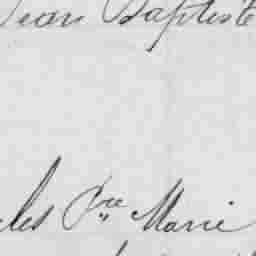 Jean Baptiste
les Pre Marie